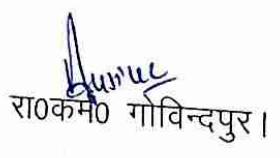 रा०कर्म० गोविन्दपुर।